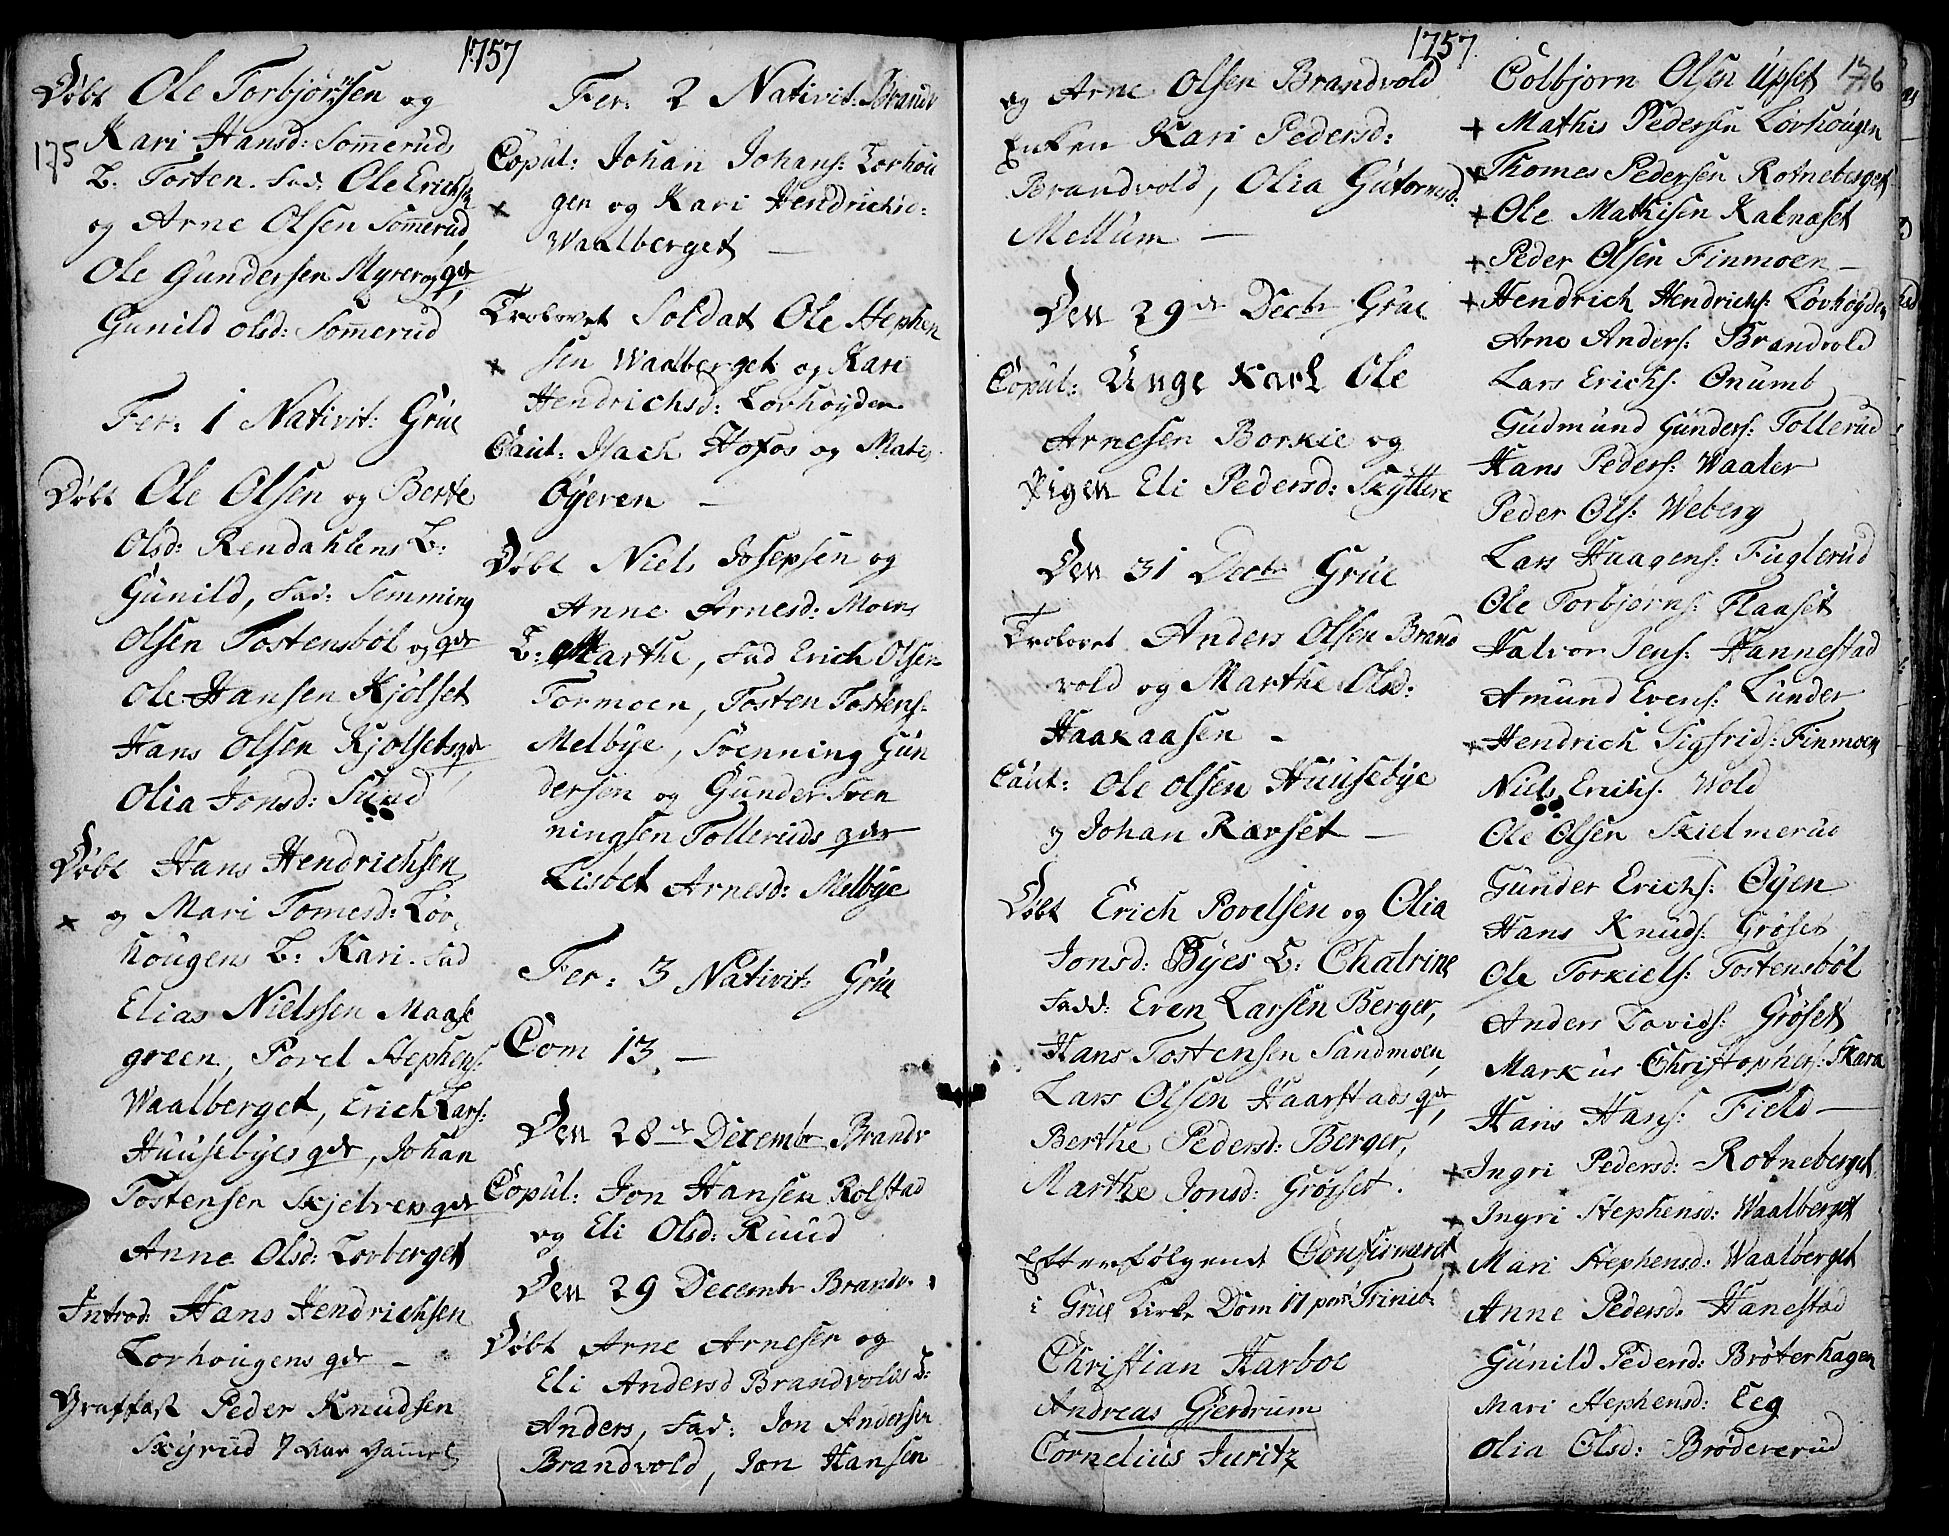 1757
Døbt Ole Torbjørnsen og
175
Kari Hansd: Somerud
B: Tosten. Fad: Ole Erichs:
og Arne Olsen Somerud,
Ole Gundersen Myrer og qdr
Gunild olsd: Somerud
Fer: 1 Nativit: Grue
Døbt Ole Olsen og Berte
Olsd: Rendahlens B:
Gunild, Fad: Semming
Olsen Tostensbøl og qdr
Ole Hansen Kjølset
Hans Olsen Kjolsets qdr
Olia Jonsd: Sund
Døbt Hans Hendrichsen
x og Mari Tomesd: Løv
hougens B: Kari. Fad
Elias Nielssen Maase
green, Povel Stephens:
Waalberget, Erich Lars:
Huusebyes qdr, Johan
Tostensen Skjelver qdr
Anne Olsd: Lovberget
Introd: Hans Hendrichsen
Lovhougens qdr –
Graffæst Peder Knudsen
Skyrud 7 Aar gamel
Fer: 2 Nativit: Brandv
Copul: Johan Johans: Lovhou
x gen og Kari Hendrichsd:
Waalberget –
Trolovet Soldat Ole Stephen
x sen Waalberget og Kari
Hendrichsd: Lovhøyden
Caut: Isach Hofos og Matis
Øyeren –
Døbt Niels Josepsen og
Anne Arnesd: Moens
B: Marthe, Fad Erich Olsen
Tormoen, Tosten Tostens:
Melbye, Soenning Gun
dersen og Gunder Sven
ningsen Tolleruds qdr
Lisbet Arnesd: Melbye
Fer: 3 Nativit: Grue
Com 13. –
Den 28de Decembr Brandv
Copul: Jon Hansen Rolstad
og Eli Olsd: Ruud
Den 29 Decembr Brandv:
Døbt Arne Arnesen og
Eli Andersd Brandvolds B:
Anders, Fad: Jon Andersen
Brandvold, Jon Hansen
1757
og Arne Olsen Brandvold
Enken Kari Pedersd:
Brandvold, Olia Gutormsd:
Mellum –
Den 29de Decbr Grue
Copul: Unge Karl Ole
Arnesen Borkie og
Pigen Eli Pedersd: Skyttere
Den 31 Decbr Grue
Trolovet Anders Olsen Brand
vold og Marthe Olsd:
Haakaasen –
Caut: Ole olsen Huusebye
og Johan Rævset –
Døbt Erich Povelsen og Olia
Jonsd: Byes B: Chatrine
Fadd: Even Larsen Berger,
Hans Tostensen Sandmoen,
Lars Olsen Haarstads qdr,
Berthe Pedersd: Berger,
Marthe Jonsd: Grøsset.
Efterfølgende Confirmeret
i Grue Kirke Dom 11 post Trinit:
Christian Harboe
Andreas Gjerdrum
Cornelius Juritz
176
Colbjorn Olsen Upset
+ Mathis Pedersen Lovhougen
+ Thomes Pedersen Rotneberget
+ Ole Mathisen Kalnæset
+ Peder Olsen Finmoen –
+ Hendrich Hendrichs: Løvhøyden
Arne Anders: Brandvold
Lars Erichs: Onumb
Gudmund Gunders: Tollerud
Hans Peders: Waaler
Peder Ols: Weberg
Lars Haagens: Fuglerud
Ole Torbjorns: Flaaset
Halvor Jens: Hannestad
Amund Evens: Lunder
+ Hendrich Sigfrids: Finmoen
Niels Erichs. Wold
Ole Olsen Skielmerud
Gunder Erichs: Øyen
Hans Knuds: Grøset
Ole Torkiels: Tostensbøl
Anders Davids: Grøset
Markus Christophers: Skara
Hans Hans: Field –
+ Ingri Pedersd: Rotneberget
+ Ingri Stephensd: Waalberget
+ Mari Stephensd: Waalberget
Anne Pedersd: Hanestad
Gunild Pedersd: Brøterhagen
Mari Stephensd: Eeg
Olia Olsd: Brødererud